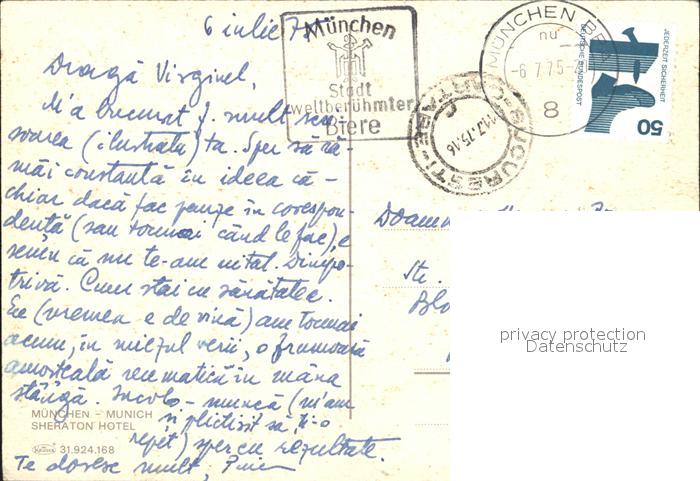 6 iulie 75
Dragă Virginel,
M'a bucurat f. mult scri-
soarea (ilustrata) ta. Sper să ră-
mâi constantă în ideea că -
chiar dacă fac pauze în corespon-
dență (sau tocmai când le fac), e
semn că nu te-am uitat. Dimpo-
trivă. Cum stai cu sănătatea.
Eu (vremea e de vină) am tocmai
acum, în miezul verii, o frumoasă
amorțeală reumatică în mâna
stângă. Încolo - muncă (m'am
și plictisit să ți-o
repet) sper cu rezultate.
Te doresc mult,
MÜNCHEN - MUNICH
SHERATON HOTEL
Krüger 31.924.168
München
Stadt
weltberühmter
Biere
MÜNCHEN
nu
-6.7.75-
8
BUCUREȘTI
CARTARE
11.7.75.16
JEDERZEIT SICHERHEIT
DEUTSCHE BUNDESPOST
50
Doamn
Str.
Blo
privacy protection
Datenschutz